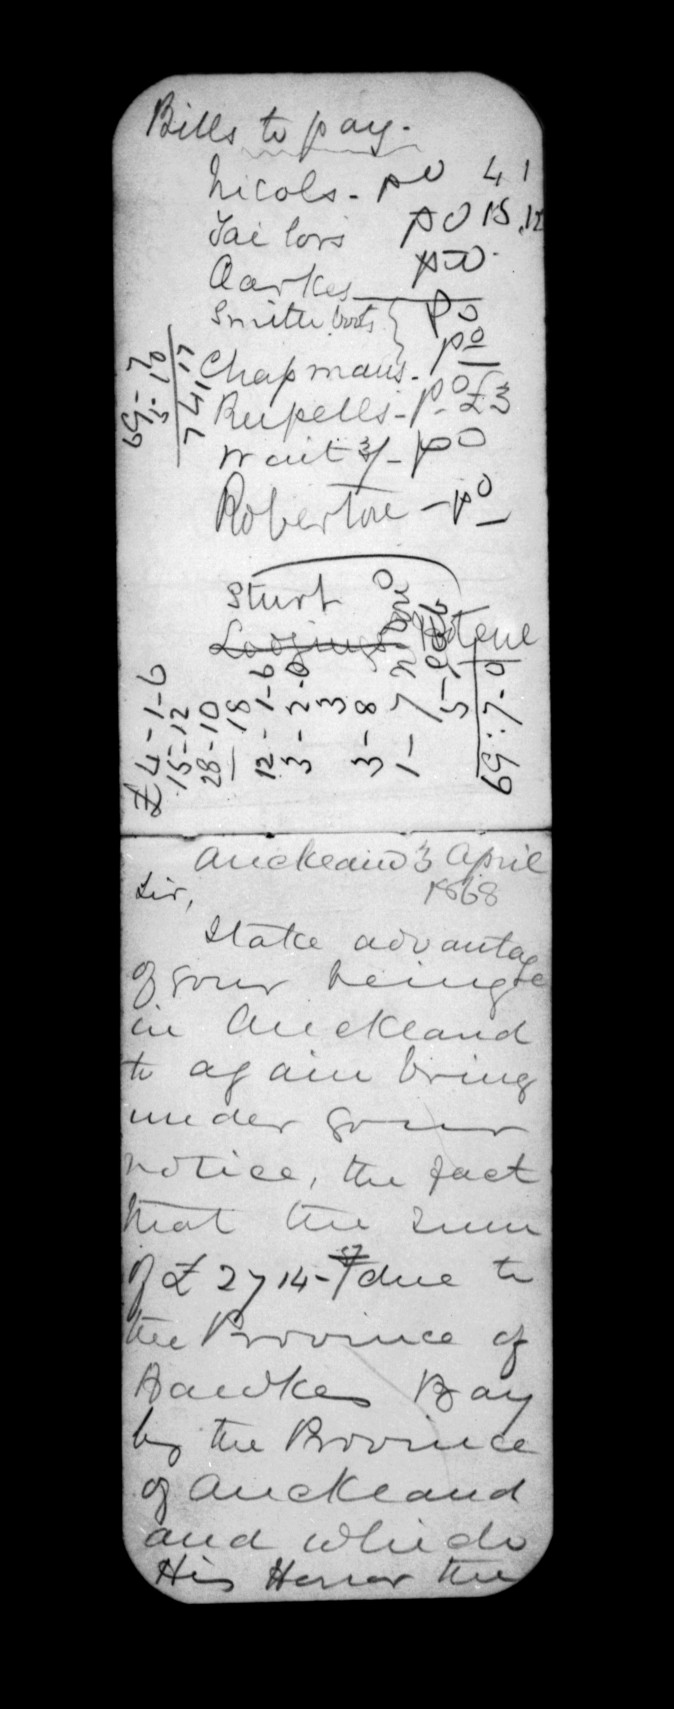 Bills to pay.
Nicols - pd 4 1
Tailors pd 15.12
pd
Smith boots pd
Chapmans. pd
- pd £3
Wait 3/- pd
- pd
69-7
5-10
74,17
Sturt
Lodgings
Hotel
£4-1-6
15-12
28-10
18
12-1-6
3-2-0
3
3-8
1-7
5-
69:7-0
Auckland 3 April
1868
Sir,
I take advantage
of your being
in Auckland
to again bring
under your
notice, the fact
that the sum
of £2714- due to
the Province of
Hawkes Bay
by the Province
of Auckland
and which
His Honor the